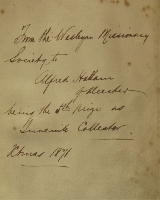 From the Wesleyan Missionary
Society to
Alfred Hallam
Leicester
being the 5th prize as
Juvenile Collector.
Xtmas 1871